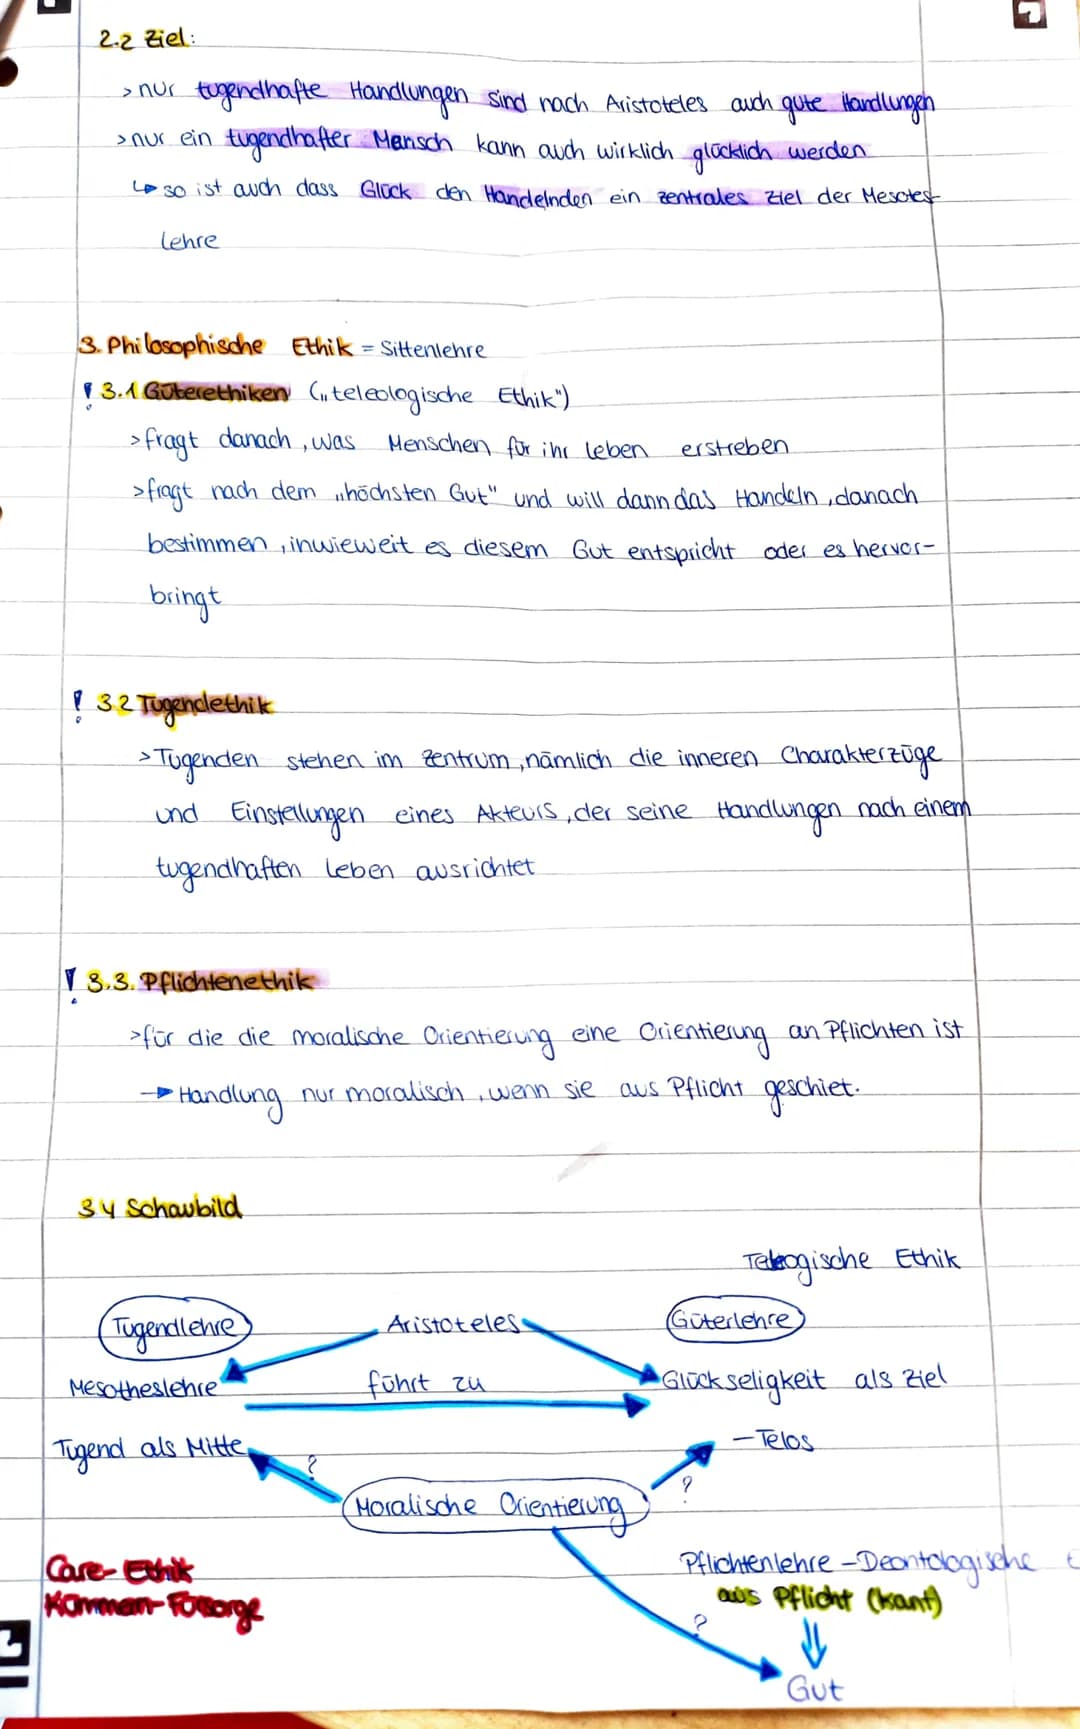 2.2 Ziel:
> nur tugendhafte Handlungen sind nach Aristoteles auch gute Handlungen
> nur ein tugendhafter Mensch kann auch wirklich glücklich werden
↳ so ist auch dass Glück den Handelnden ein zentrales Ziel der Mesotes-
Lehre
3. Philosophische Ethik = Sittenlehre
! 3.1 Güterethiken („teleologische Ethik")
> fragt danach, was Menschen für ihr Leben erstreben
> fragt nach dem „höchsten Gut" und will dann das Handeln, danach
bestimmen, inwieweit es diesem Gut entspricht oder es hervor-
bringt
! 3.2 Tugendethik
> Tugenden stehen im Zentrum, nämlich die inneren Charakterzüge
und Einstellungen eines Akteurs, der seine Handlungen nach einem
tugendhaften Leben ausrichtet
! 3.3. Pflichtenethik
> für die die moralische Orientierung eine Orientierung an Pflichten ist
→ Handlung nur moralisch, wenn sie aus Pflicht geschiet.
3.4 Schaubild
Teleogische Ethik
Tugendlehre Aristoteles Güterlehre
Mesotheslehre führt zu Glückseligkeit als Ziel
Tugend als Mitte ? – Telos
Moralische Orientierung ?
Care-Ethik
Pflichtenlehre – Deontologische E
Fürsorge
aus Pflicht (Kant)
?
⇓
Gut